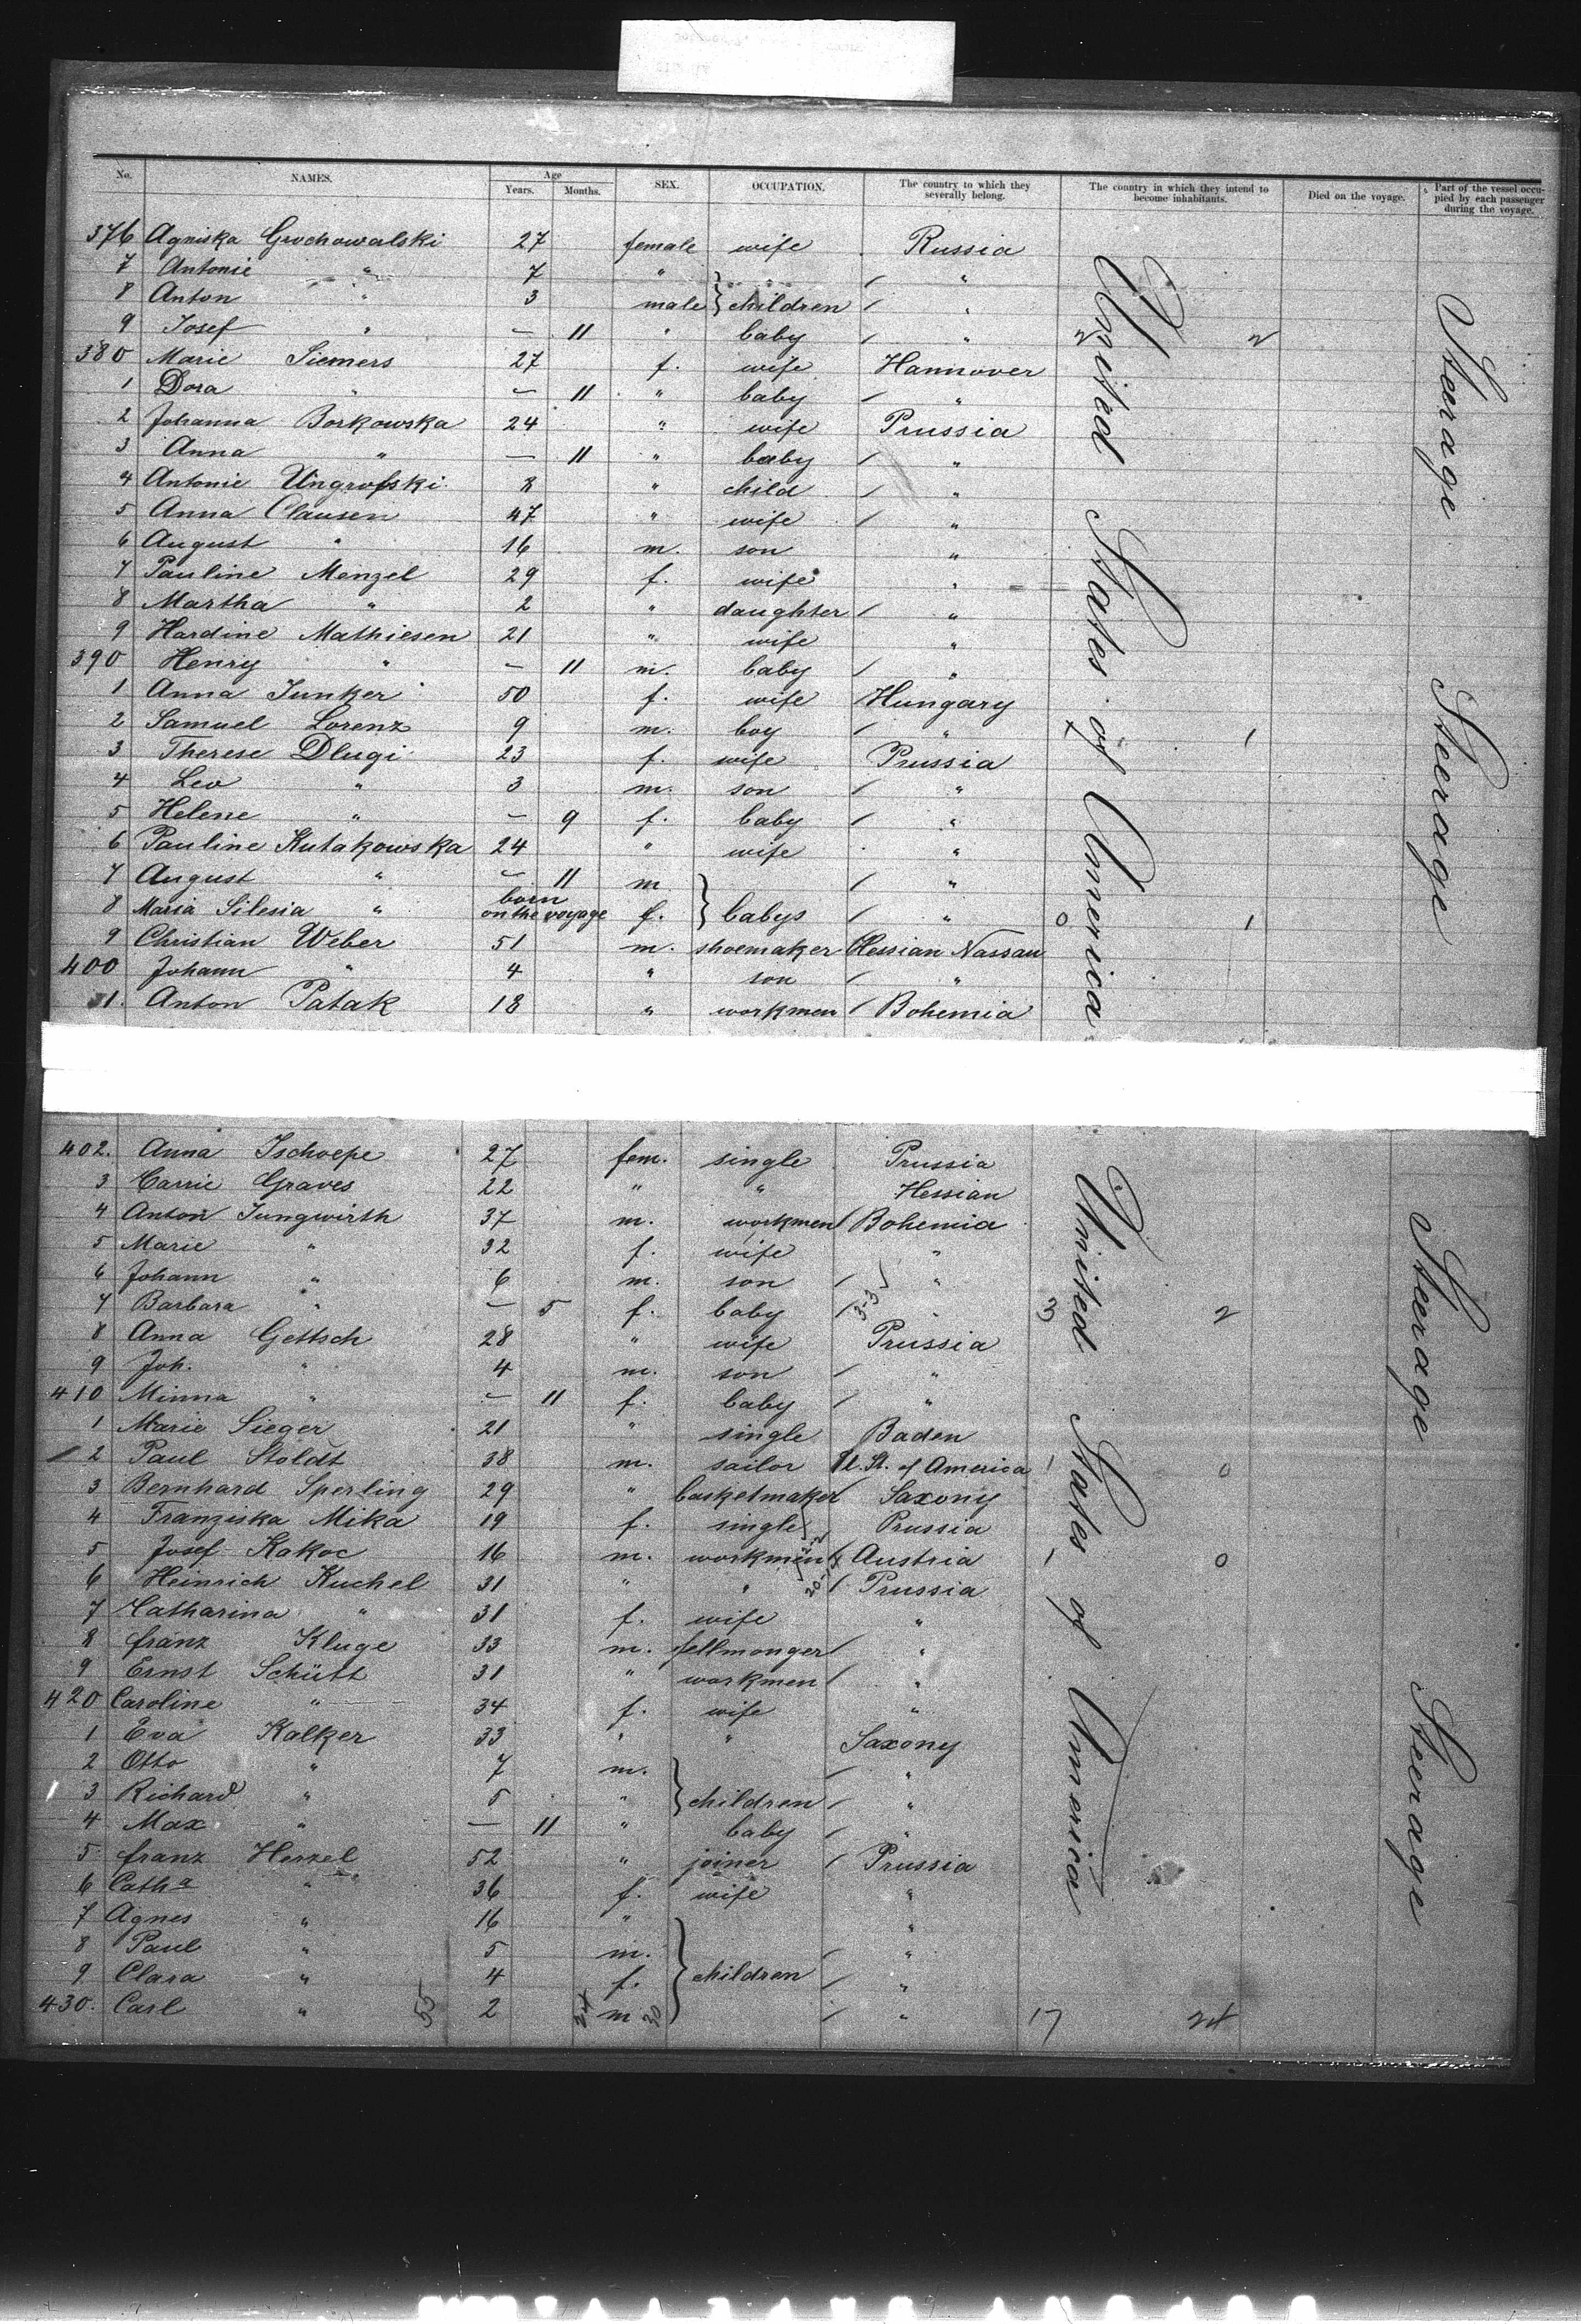 No. NAMES. Age Years. Months. SEX. OCCUPATION. The country to which they severally belong. The country in which they intend to become inhabitants. Died on the voyage. Part of the vessel occupied by each passenger during the voyage.
376 Agniska Grochowalski 27 female wife Russia
7 Antonie " 7 " "
8 Anton " 3 male } children / "
9 Josef " — 11 " baby / " 2 2
380 Marie Siemers 27 f. wife Hannover
1 Dora " — 11 " baby / "
2 Johanna Borkowska 24 " wife Prussia
3 Anna " — 11 " baby / "
4 Antonie Ungrofski 8 " child / "
5 Anna Clausen 47 " wife / "
6 August " 16 m. son "
7 Pauline Menzel 29 f. wife "
8 Martha " 2 " daughter / "
9 Hardine Mathiesen 21 " wife "
390 Henry " — 11 m. baby / "
1 Anna Junker 50 f. wife Hungary
2 Samuel Lorenz 9 m. boy / " 1 1
3 Therese Dlugi 23 f. wife Prussia
4 Leo " 3 m. son / "
5 Helene " — 9 f. baby / "
6 Pauline Kutakowska 24 " wife "
7 August " — 11 m / "
8 Maria Silesia " born on the voyage f. } babys / " 0 1
9 Christian Weber 51 m. shoemaker Hessian Nassau
400 Johann " 4 " son / "
1. Anton Patak 18 " workmen / Bohemia
United States of America
Steerage
Steerage
402. Anna Tschoepe 27 fem. single Prussia
3 Carrie Graves 22 " " Hessian
4 Anton Jungwirth 37 m. workmen / Bohemia
5 Marie " 32 f. wife "
6 Johann " 6 m. son / "
7 Barbara " — 5 f. baby / 3-3 " 3 2
8 Anna Gettsch 28 " wife Prussia
9 Joh. " 4 m. son / "
410 Minna " — 11 f. baby / "
1 Marie Sieger 21 " single Baden
2 Paul Stoldt 38 m. sailor U. St. of America 1 0
3 Bernhard Sperling 29 " basketmaker / Saxony
4 Franziska Mika 19 f. single Prussia
5 Josef Kakoc 16 m. workmen Austria 1 0
6 Heinrich Kuchel 31 " " / Prussia
7 Catharina " 31 f. wife "
8 franz Kluge 33 m. fellmonger / "
9 Ernst Schütt 31 " workmen / "
420 Caroline " 34 f. wife "
1 Eva Kalker 33 " " Saxony
2 Otto " 7 m. / "
3 Richard " 5 " } children / "
4 Max " — 11 " baby / "
5 franz Herzel 52 " joiner / Prussia
6 Catha " 36 f. wife "
7 Agnes " 16 " "
8 Paul " 5 m. / "
9 Clara " 4 f. } children / "
430. Carl " 55 2 24 m 30 / " 17 24
United States of America
Steerage
Steerage